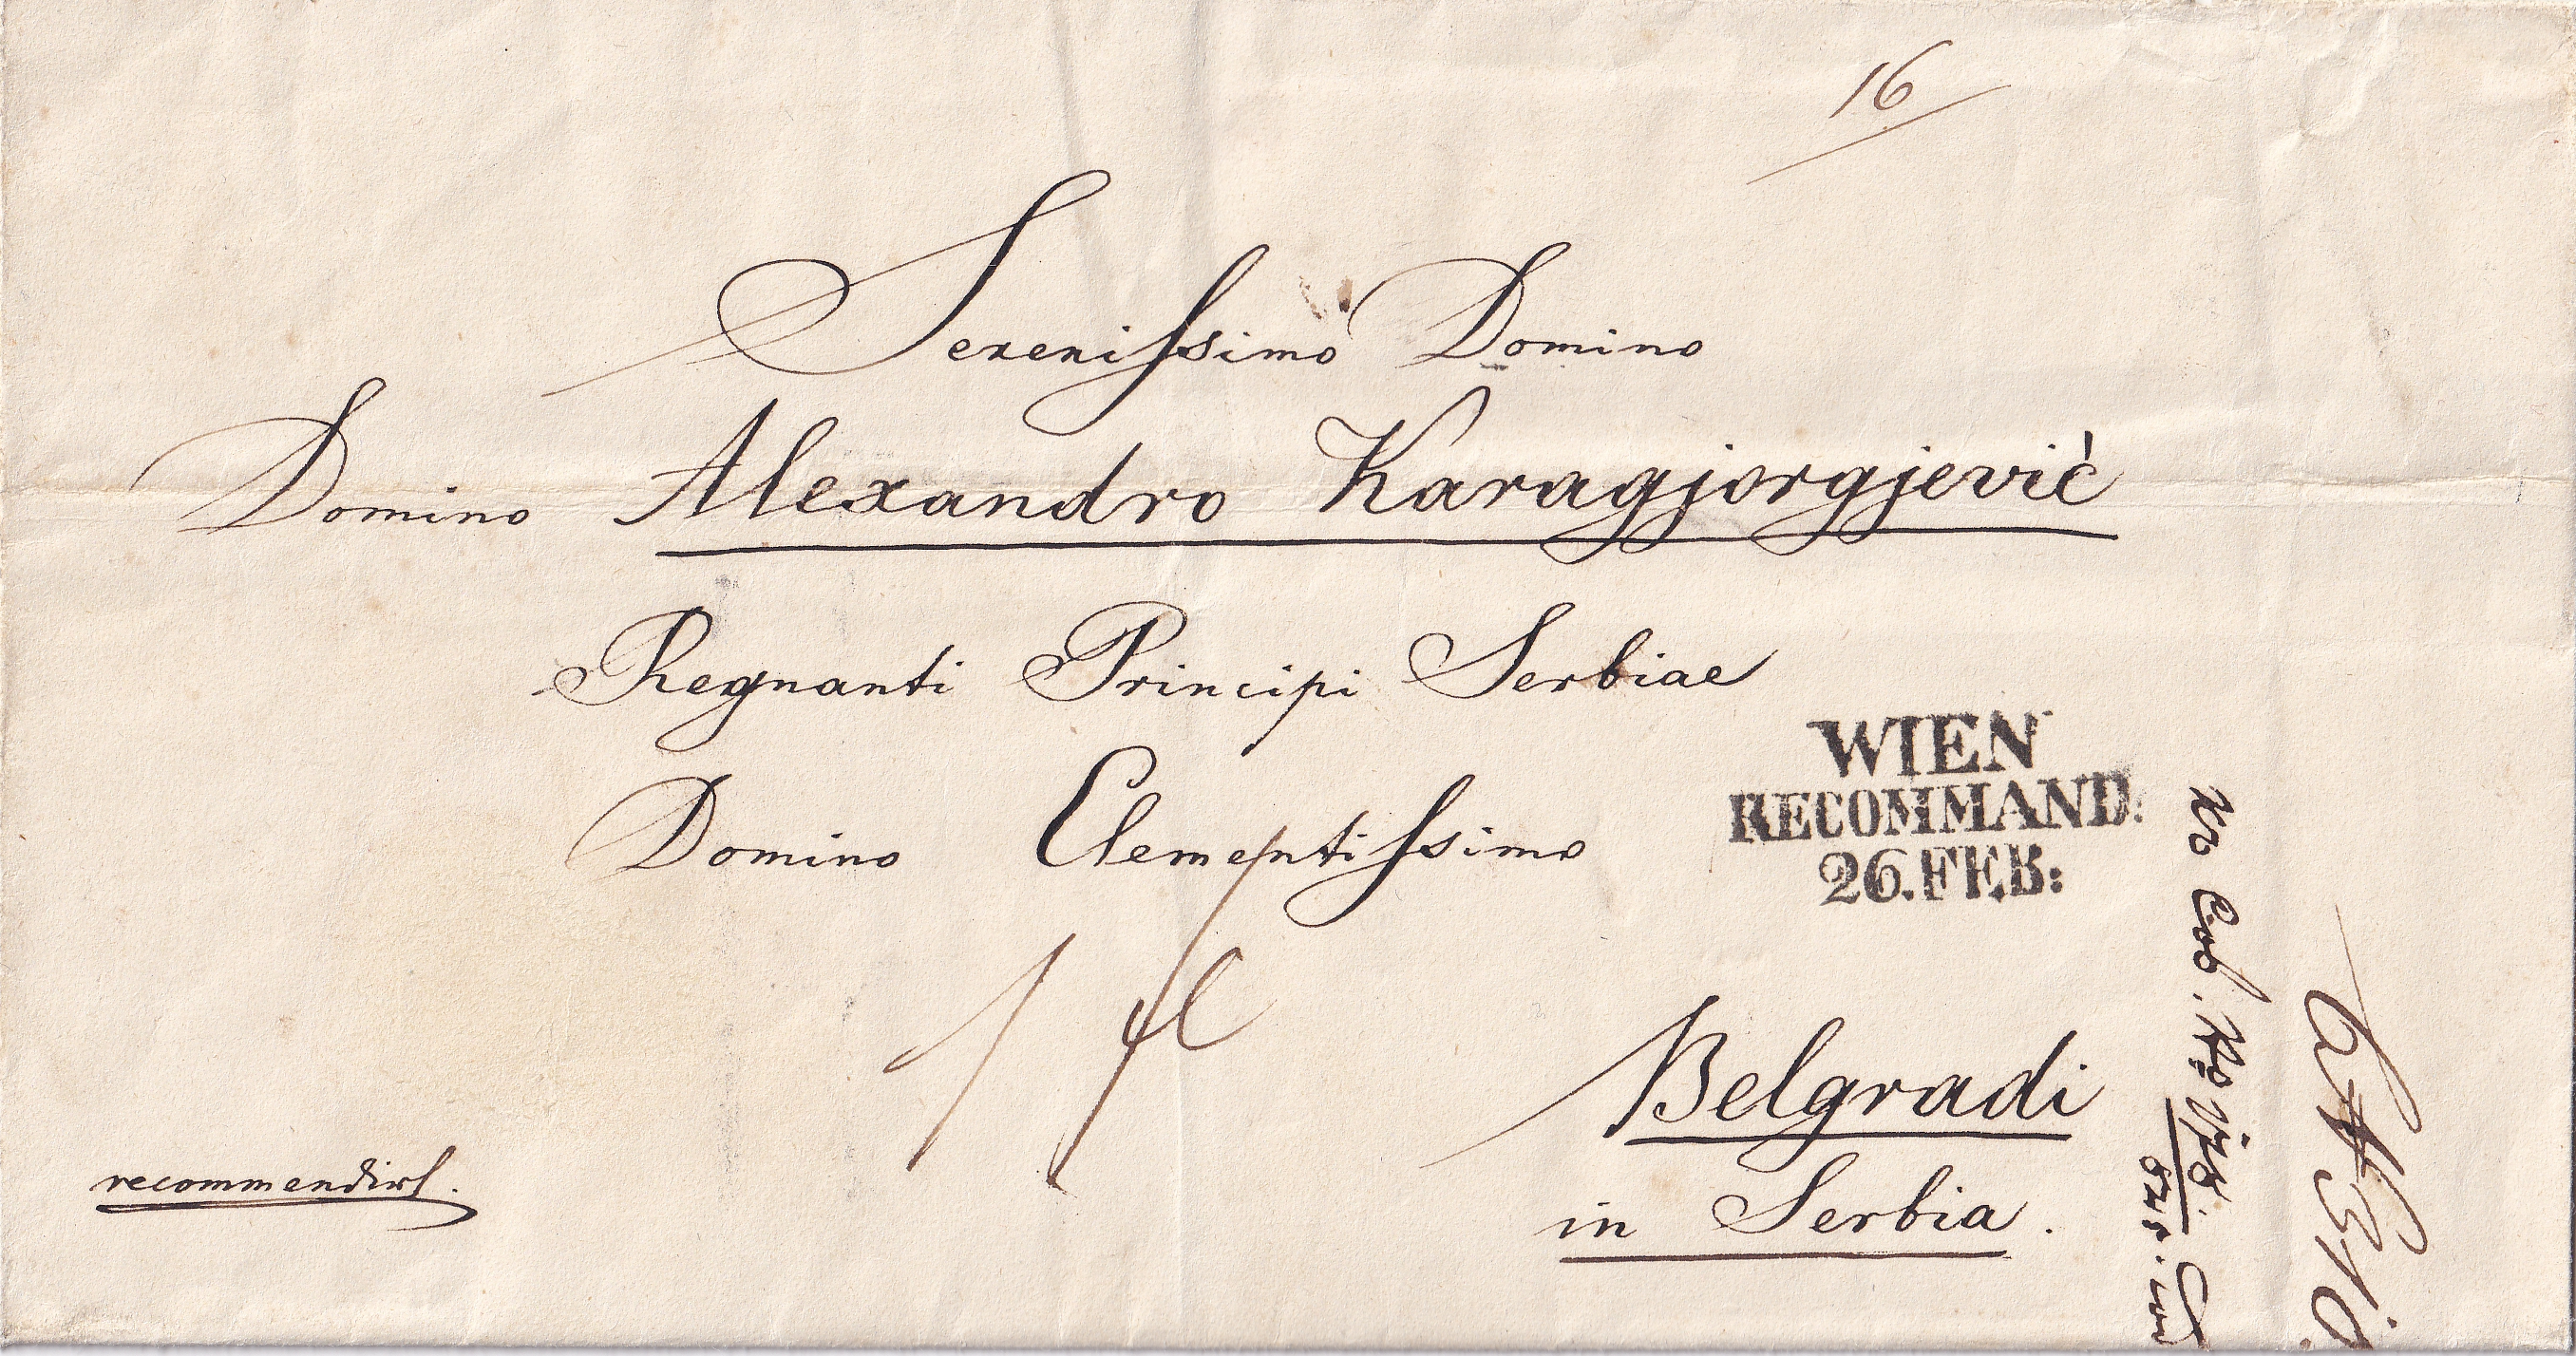 16
Serenissimo Domino
Domino Alexandro Karagjorgjević
Regnanti Principi Serbiae
Domino Clementissimo
WIEN
RECOMMAND:
26.FEB:
Belgradi
in Serbia.
recommendirt.